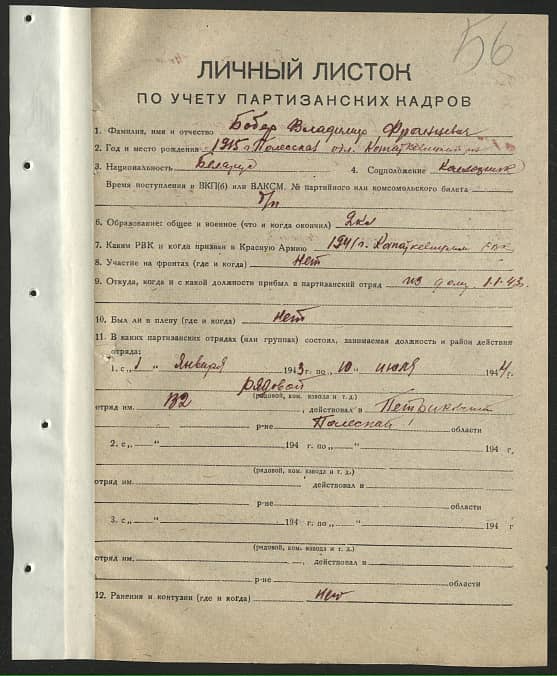 56
ЛИЧНЫЙ ЛИСТОК
ПО УЧЕТУ ПАРТИЗАНСКИХ КАДРОВ
1. Фамилия, имя и отчество Бобер Владимир
2. Год и место рождения 1915 г Полесская обл.
3. Национальность Беларус 4. Соцположение Колхозник
Время поступления в ВКП(б) или ВЛКСМ. № партийного или комсомольского билета
б/п
6. Образование: общее и военное (что и когда окончил) 2 кл
7. Каким РВК и когда призван в Красную Армию 1941 г. РВК
8. Участие на фронтах (где и когда) Нет
9. Откуда, когда и с какой должности прибыл в партизанский отряд из дому 1.1.43
10. Был ли в плену (где и когда) нет
11. В каких партизанских отрядах (или группах) состоял, занимаемая должность и район действия
отряда:
1. с „ 1 „ Января 1943 г. по „ 10 „ июля 1944 г.
рядовой
(рядовой, ком. взвода и т. д.)
отряд им. 132, действовал в Петриковский
р-не Полеской области
2. с „ „ 194 г. по „ „ 194 г,
(рядовой, ком. взвода и т. д.)
отряд им. , действовал в
р-не области
3. с „ „ 194 г. по „ „ 194 г
(рядовой, ком. взвода и т. д.)
отряд им. , действовал в
р-не области
12. Ранения и контузии (где и когда) нет